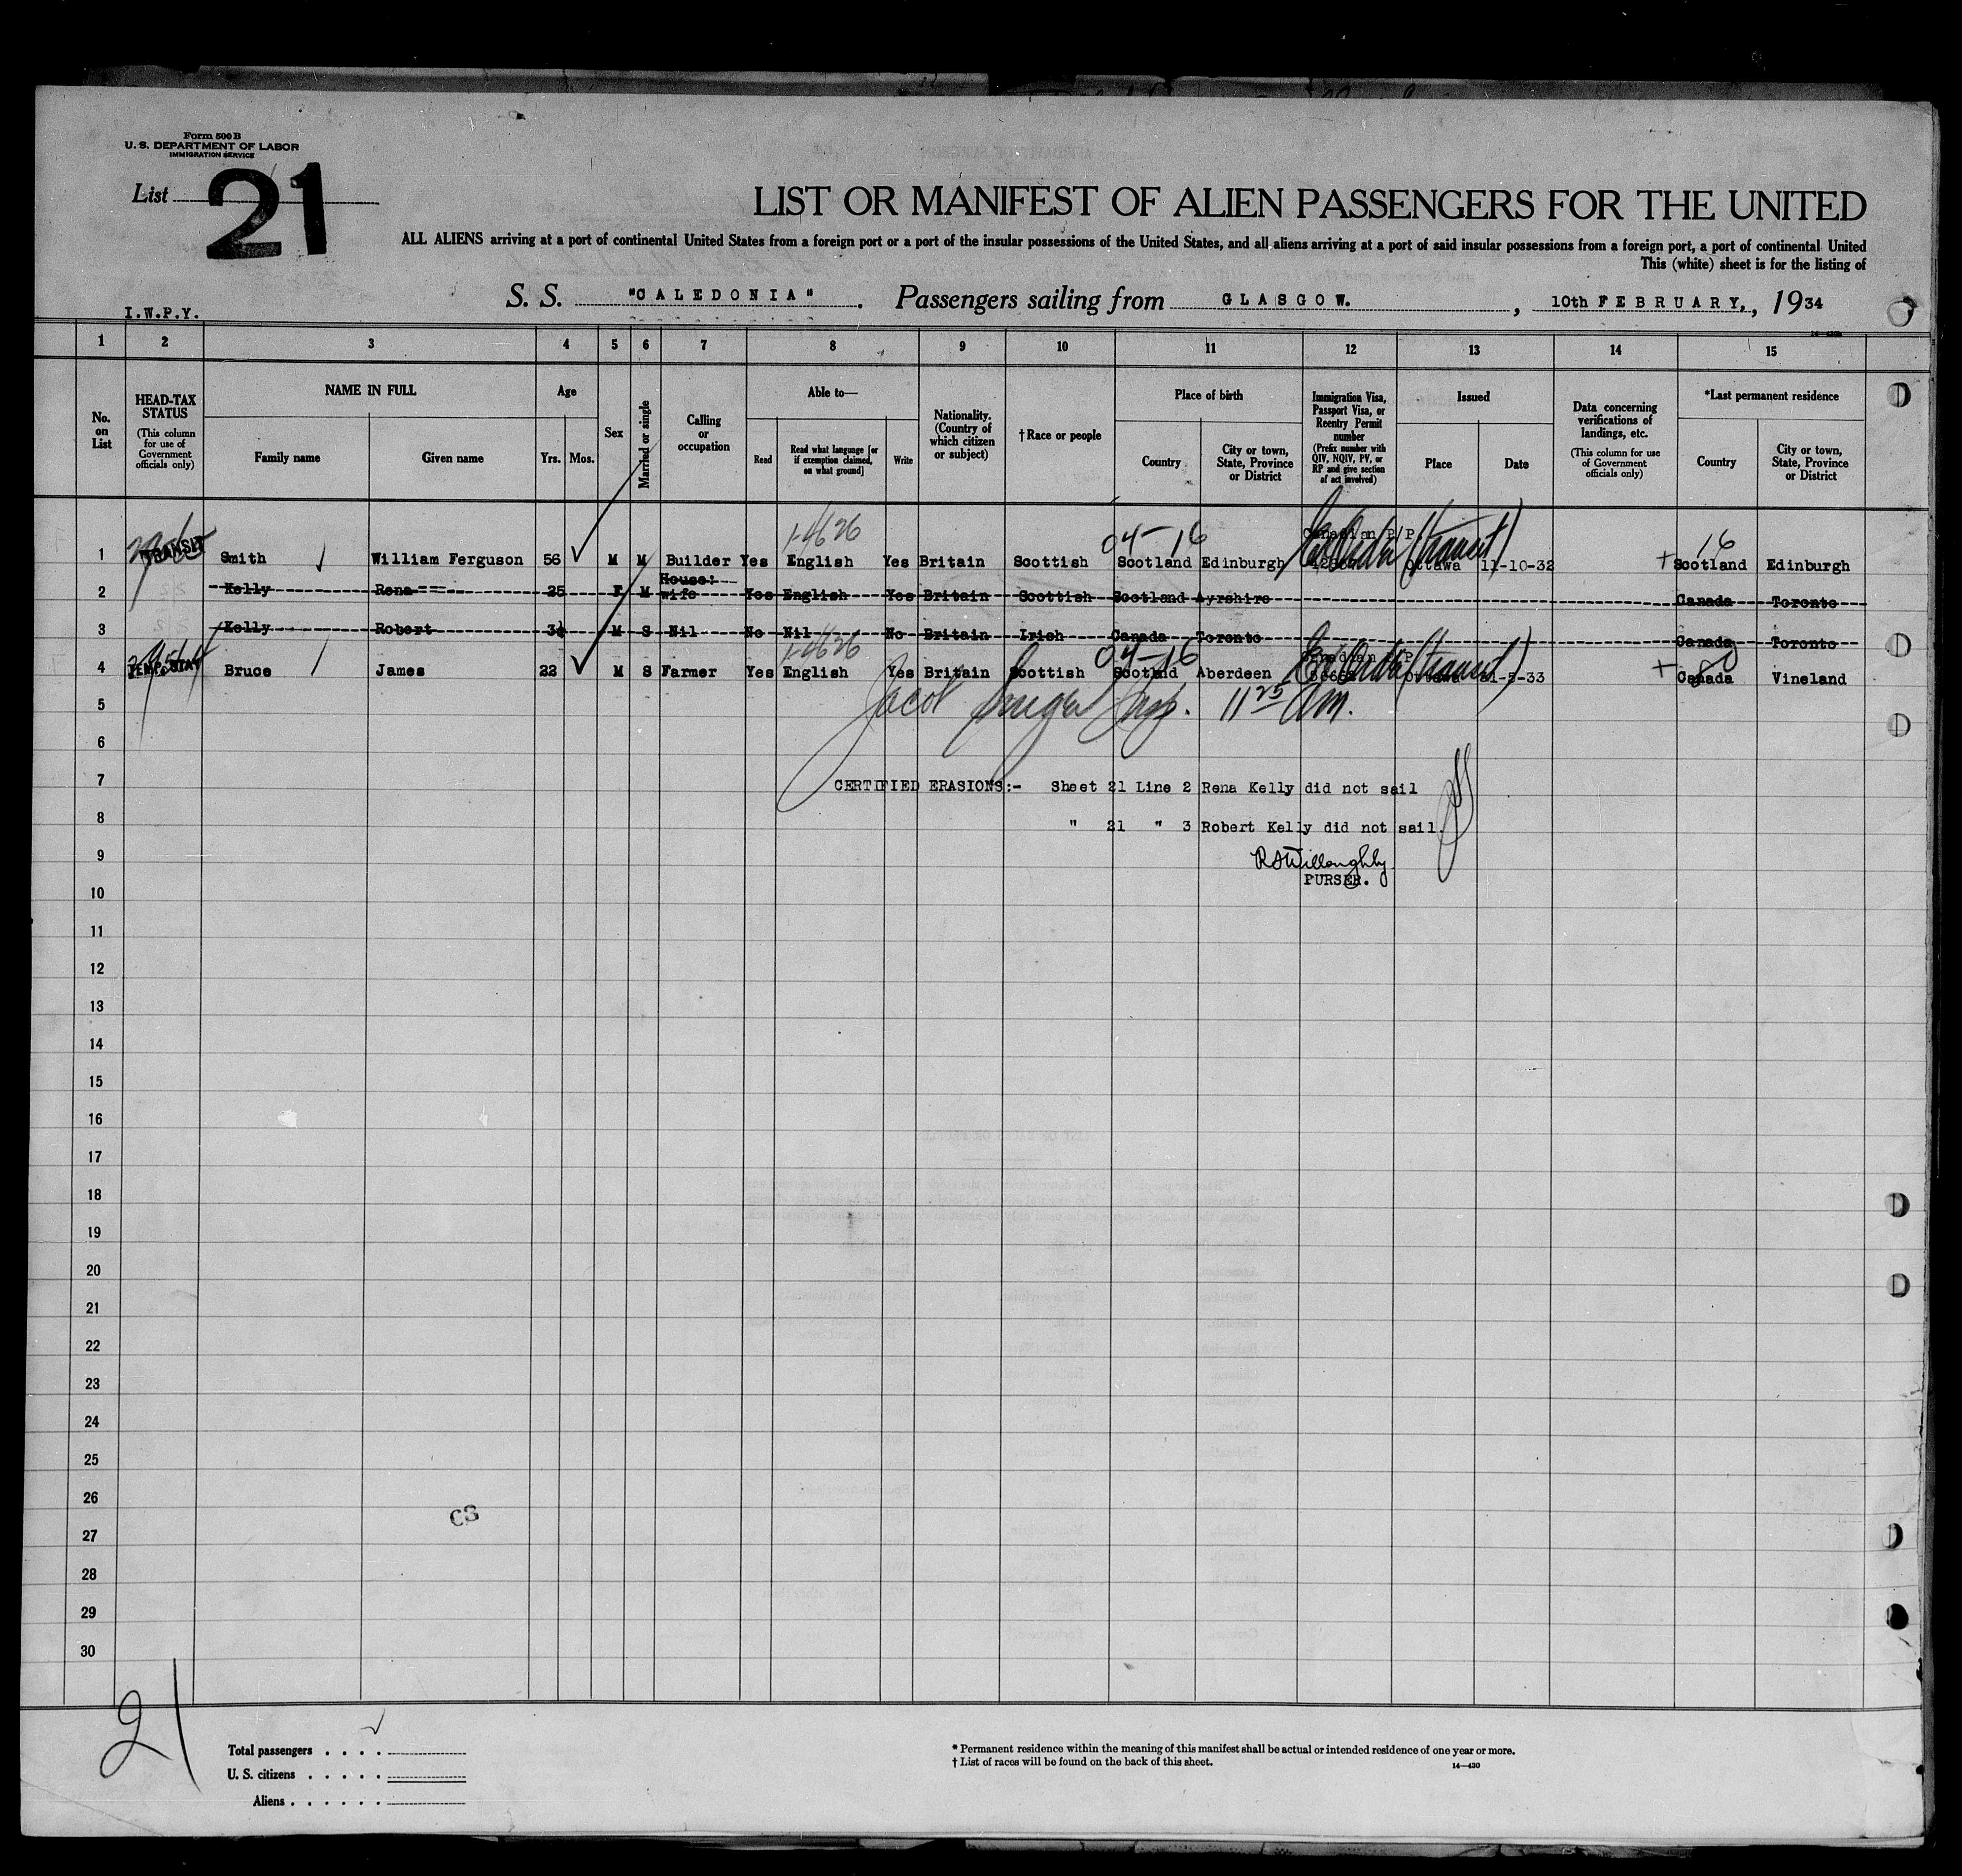 Form 500 B
U. S. DEPARTMENT OF LABOR
IMMIGRATION SERVICE
List 21
LIST OR MANIFEST OF ALIEN PASSENGERS FOR THE UNITED
ALL ALIENS arriving at a port of continental United States from a foreign port or a port of the insular possessions of the United States, and all aliens arriving at a port of said insular possessions from a foreign port, a port of continental United
This (white) sheet is for the listing of
I.W.P.Y.
S. S. "CALEDONIA". Passengers sailing from GLASGOW. , 10th FEBRUARY, , 1934
1 2 3 4 5 6 7 8 9 10 11 12 13 14 15
No. on List
HEAD-TAX STATUS (This column for use of Government officials only)
NAME IN FULL
Family name Given name
Age
Yrs. Mos.
Sex
Married or single
Calling or occupation
Able to—
Read Read what language [or if exemption claimed, on what ground] Write
Nationality. (Country of which citizen or subject)
† Race or people
Place of birth
Country City or town, State, Province or District
Immigration Visa, Passport Visa, or Reentry Permit number (Prefix number with QIV, NQIV, PV, or RP and give section of act involved)
Issued
Place Date
Data concerning verifications of landings, etc. (This column for use of Government officials only)
*Last permanent residence
Country City or town, State, Province or District
1-4626 04-16 Canadian P/P (transit) 16
1 TRANSIT Smith William Ferguson 56 M M Builder Yes English Yes Britain Scottish Scotland Edinburgh Ottawa 11-10-32 Scotland Edinburgh
2 Kelly Rena 25 F M House: wife Yes English Yes Britain Scottish Scotland Ayrshire Canada Toronto
3 Kelly Robert 3½ M S Nil No Nil No Britain Irish Canada Toronto Canada Toronto
1-4626 04-16 (transit)
4 TEMP. STAY Bruce James 22 M S Farmer Yes English Yes Britain Scottish Scotland Aberdeen Ottawa -5-33 Canada Vineland
5 Jacob Insp. 11 25 Am.
6
7 CERTIFIED ERASIONS:- Sheet 21 Line 2 Rena Kelly did not sail
8 " 21 " 3 Robert Kelly did not sail.
9 R Willoughby
10 PURSER.
11
12
13
14
15
16
17
18
19
20
21
22
23
24
25
26
C3
27
28
29
30
21
Total passengers . . . .
U. S. citizens . . . . .
Aliens . . . . . .
* Permanent residence within the meaning of this manifest shall be actual or intended residence of one year or more.
† List of races will be found on the back of this sheet.
14—430